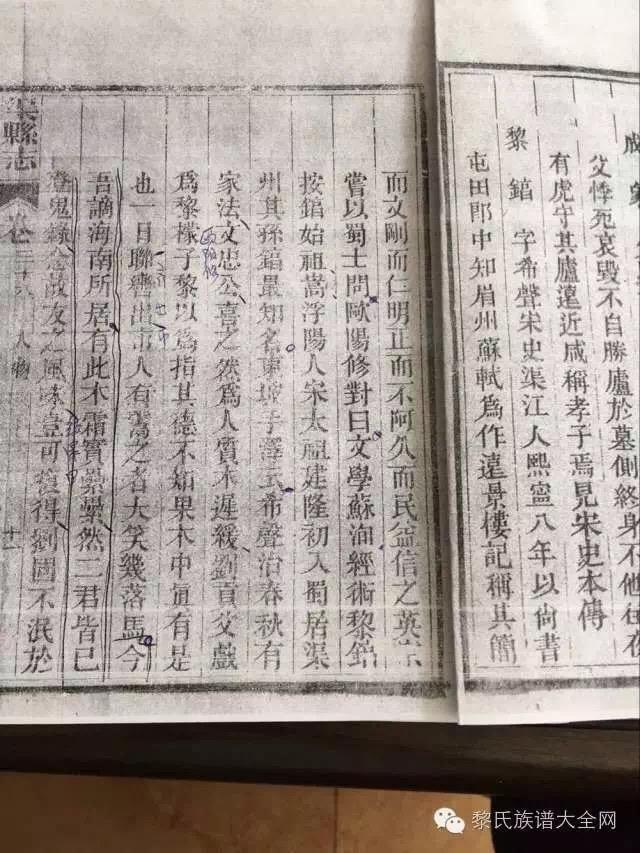 父悖死哀毀不自勝廬於墓側終身不他往夜
有虎守其廬遠近咸稱孝子焉見宋史本傳
黎錞 字希聲宋史渠江人熙寧八年以尚書
屯田郎中知眉州蘇軾為作遠景樓記稱其簡
而文剛而仁明正而不阿久而民益信之英宗
嘗以蜀士問歐陽修對曰文學蘇洵經術黎錞
按錞始祖嵩浮陽人宋太祖建隆初入蜀居渠
州其孫錞最知名東坡手澤云希聲治春秋有
家法文忠公喜之然為人質木遲緩劉貢父戲
為黎檬子黎以為指其德不知果木中真有是
也一日聯轡出市人有鬻之者大笑幾落馬今
吾謫海南所居有此木霜實纍纍然二君皆已
登鬼錄念故友之風味豈可復得劉固不泯於
渠縣志 卷三十六 人物 十一
黎氏族谱大全网